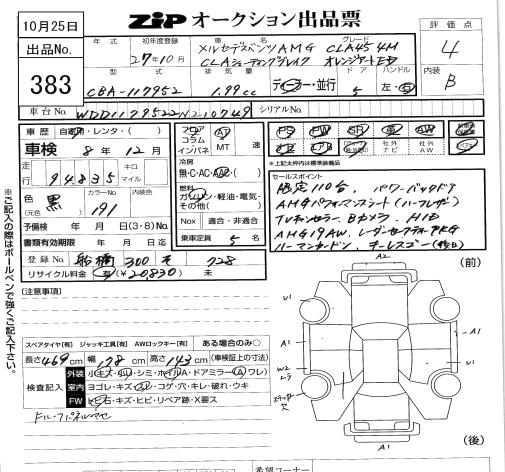 10月25日
出品No.
383
ZIP オークション出品票
評価点
4
内装
B
年式 初年度登録 車名 グレード
27年10月 メルセデスベンツAMG CLA45 4M
CLAシューティングブレイク オレンジアートED
型式 排気量 ドア ハンドル
CBA-117952 1.99cc ディーラー・並行 5 左・右
車台No. WDD1179522N210749 シリアルNo.
車歴 自家用・レンタ・( )
車検 8年12月
走行 94,835 キロ マイル
色 黒 (元色) カラーNo. 191 内装色
予備検 年 月 日(3・8)No.
書類有効期限 年 月 日迄
登録No. 船橋 300 そ 728
リサイクル料金 有(¥20,830) 未
フロア コラム インパネ AT MT 速
冷房 無・C・AC・AAC・( )
燃料 ガソリン・軽油・電気・その他( )
Nox 適合・非適合
乗車定員 5 名
PS PW SR AW
社外ナビ 社外AW
*上記太枠内は標準装備品
セールスポイント
限定110台、パワーバックドア
AMGパフォーマンスシート(ハーフレザー)
TVキャンセラー、Bカメラ、HID
AMG19AW、レーダーセーフティPKG
ハーマンカードン、キーレスゴー
【注意事項】
スペアタイヤ[有] ジャッキ工具[有] AWロックキー[有] ある場合のみ○
長さ469cm 幅178cm 高さ143cm (車検証上の寸法)
検査記入
外装 小キズ・小凹・シミ・ホイルA・ドアミラー(A ワレ)
室内 ヨゴレ・キズ・スレ・コゲ・穴・キレ・破れ・ウキ
FW 飛石・キズ・ヒビ・リペア跡・X要ス
(前)
A2
U1
U1
A1
A1
W2
U1
A1
(後)
※ご記入の際はボールペンで強くご記入下さい。
希望コーナー